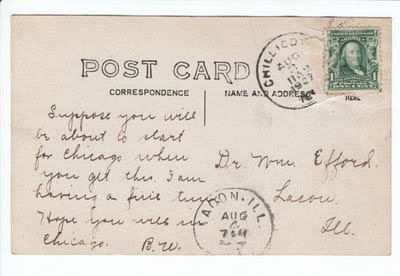 POST CARD
CORRESPONDENCE
NAME AND ADDRESS
HERE
CHILLICO
AUG
11 AM
1907
Suppose you will
be about to start
for Chicago when
you get this. I am
having a fine time
Hope you will in
Chicago. B.W.
Dr. Wm. Efford.
Lacon.
Ill.
ILL.
AUG
7 AM
1
ONE CENT